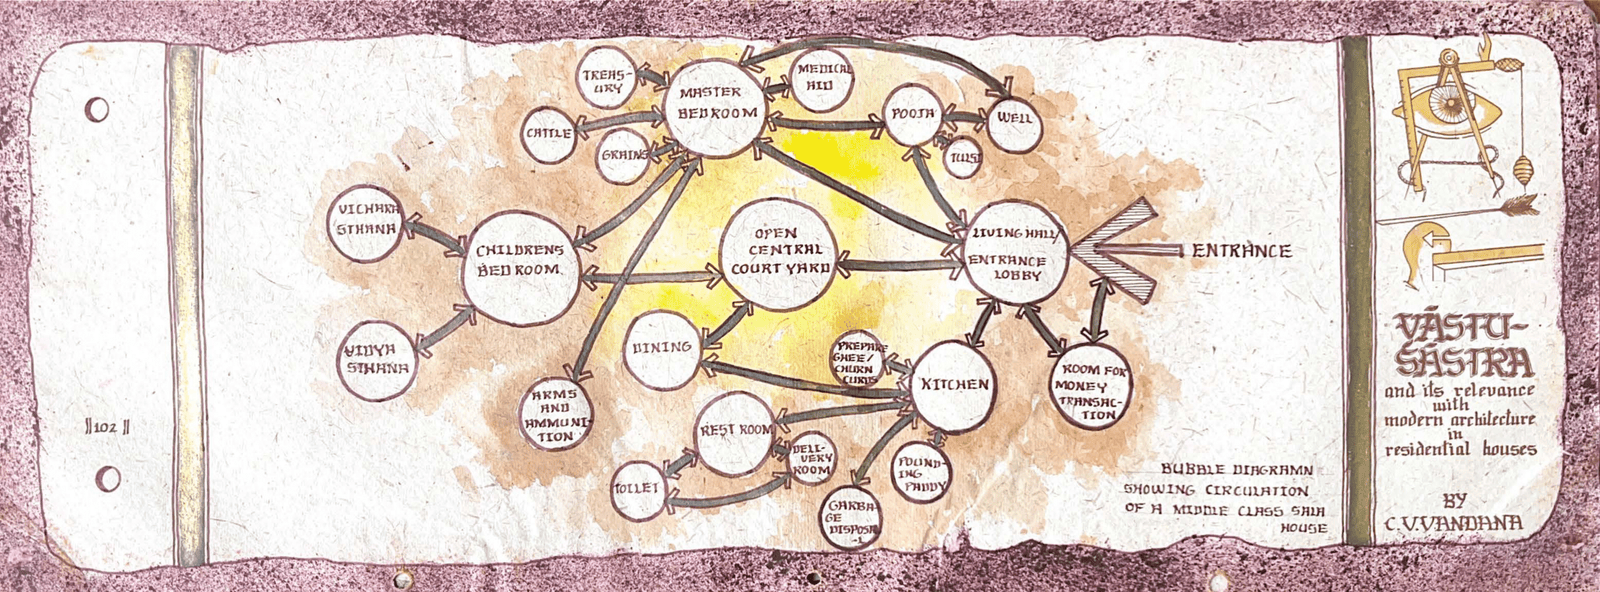 TREAS-
URY
MASTER
BEDROOM
MEDICAL
AID
CATTLE
GRAINS
POOJA
WELL
TULSI
VICHARA
STHANA
CHILDRENS
BEDROOM.
OPEN
CENTRAL
COURT YARD
LIVING HALL/
ENTRANCE
LOBBY
ENTRANCE
VIDYA
STHANA
DINING
PREPARE
GHEE/
CHURN
CURDS
KITCHEN
ROOM FOR
MONEY
TRANSAC-
TION
ARMS
AND
AMMUNI-
TION
REST ROOM
DELI-
VERY
ROOM
POUND-
ING
PADDY
TOILET
GARBA-
GE
DISPOSA-
L
||102||
BUBBLE DIAGRAMN
SHOWING CIRCULATION
OF A MIDDLE CLASS SALA
HOUSE
VĀSTU-
SĀSTRA
and its relevance
with
modern architecture
in
residential houses
BY
C.V.VANDANA